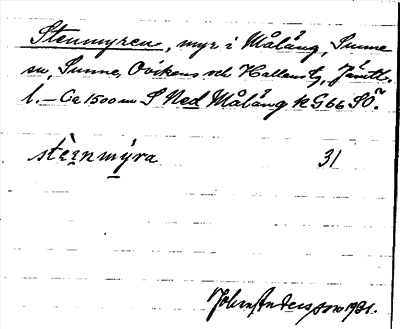 Stenmyren, myr i Målång, Sunne
sn, Sunne, Ovikens och Hallens tg, Jämtl.
l. – Ca 1500 m S Ned Målång kG66SÖ.
stèenmýra 31
John Andersson 1931.